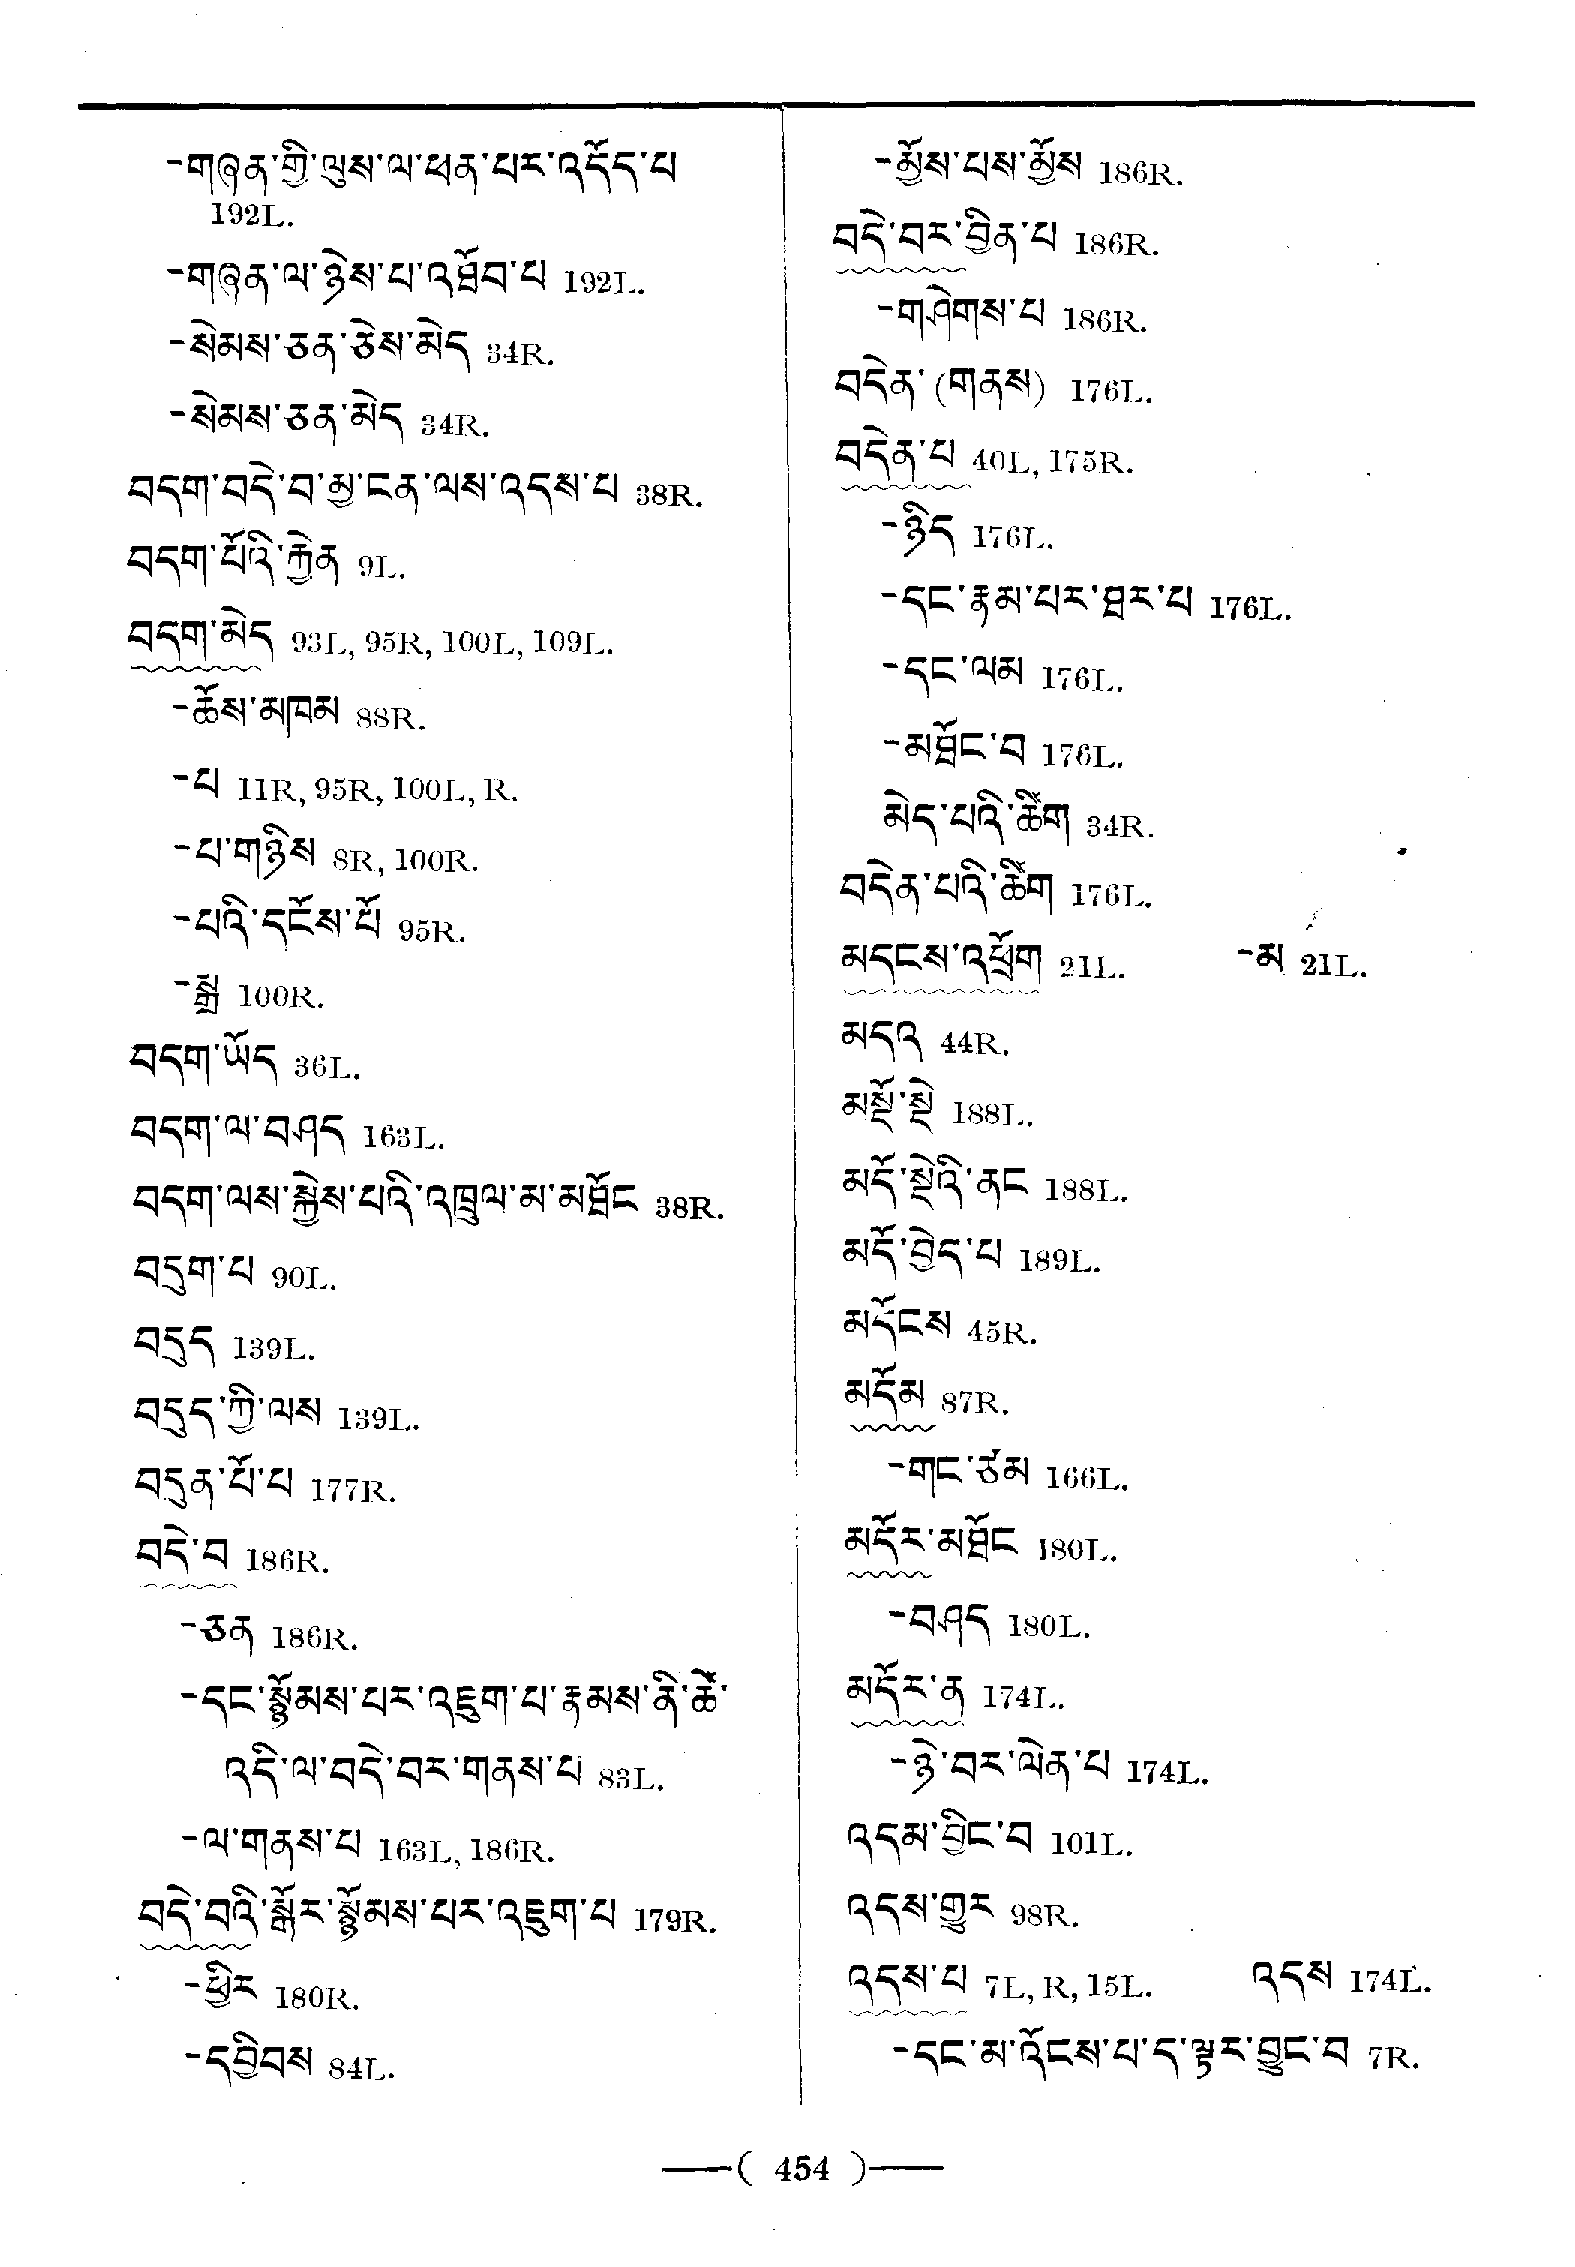 -གཞན་གྱི་ལུས་ལ་ཕན་པར་འདོད་པ
192L.
-གཞན་ལ་ཉེས་པ་འཐོབ་པ 192L.
-སེམས་ཅན་ཅེས་མེད 34R.
-སེམས་ཅན་མེད 34R.
བདག་བདེ་བ་མྱ་ངན་ལས་འདས་པ 38R.
བདག་པོའི་རྐྱེན 9L.
བདག་མེད 93L, 95R, 100L, 109L.
-ཆོས་མཁམ 88R.
-པ 11R, 95R, 100L, R.
-པ་གཉིས 8R, 100R.
-པའི་དངོས་པོ 95R.
-སྒྲ 100R.
བདག་ཡོད 36L.
བདག་ལ་བཤད 163L.
བདག་ལས་སྐྱེས་པའི་འཁྲུལ་མ་མཐོང 38R.
བདུག་པ 90L.
བདུད 139L.
བདུད་ཀྱི་ལས 139L.
བདུན་པོ་པ 177R.
བདེ་བ 186R.
-ཅན 186R.
-དང་སྙོམས་པར་འཇུག་པ་རྣམས་ནི་ཚེ་
འདི་ལ་བདེ་བར་གནས་པ 83L.
-ལ་གནས་པ 163L, 186R.
བདེ་བའི་སྒོར་སྙོམས་པར་འཇུག་པ 179R.
-ཕྱིར 180R.
-དབྱིབས 84L.
-མྱོས་པས་མྱོས 186R.
བདེ་བར་བྱིན་པ 186R.
-གཤེགས་པ 186R.
བདེན་(གནས) 176L.
བདེན་པ 40L, 175R.
-ཉིད 176L.
-དང་རྣམ་པར་ཐར་པ 176L.
-དང་ལམ 176L.
-མཐོང་བ 176L.
མེད་པའི་ཚིག 34R.
བདེན་པའི་ཚིག 176L.
མདངས་འཕྲོག 21L. -མ 21L.
མདའ 44R.
མསྡོ་སྡེ 188L.
མདོ་སྡེའི་ནང 188L.
མདོ་བྱེད་པ 189L.
མདོངས 45R.
མདོམ 87R.
-གང་ཙམ 166L.
མདོར་མཐོང 180L.
-བཤད 180L.
མདོར་ན 174L.
-ཉེ་བར་ལེན་པ 174L.
འདམ་བྱིང་བ 101L.
འདས་གྱུར 98R.
འདས་པ 7L, R, 15L. འདས 174L.
-དང་མ་འོངས་པ་ད་ལྟར་བྱུང་བ 7R.
—( 454 )—